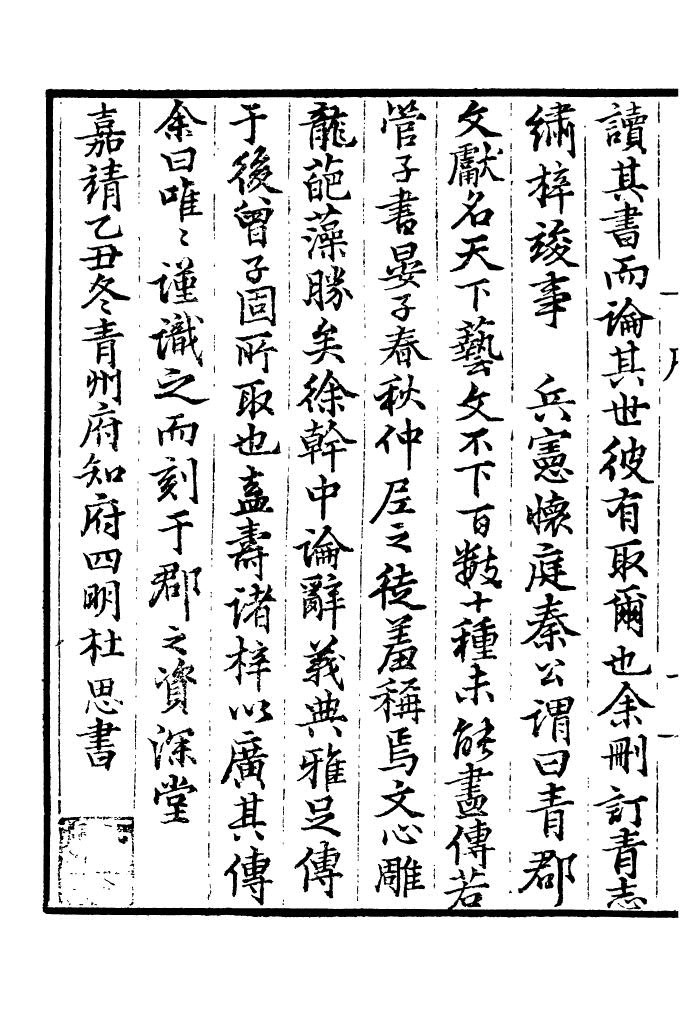 讀其書而論其世彼有取爾也余刪訂青志
繡梓竣事　兵憲懷庭秦公謂曰青郡
文獻名天下藝文不下百數十種未能盡傳若
管子書晏子春秋仲尼之徒羞稱焉文心雕
龍葩藻勝矣徐幹中論辭義典雅足傳
于後曾子固所取也盍壽諸梓以廣其傳
余曰唯〻謹識之而刻于郡之資深堂
嘉靖乙丑冬青州府知府四明杜思書